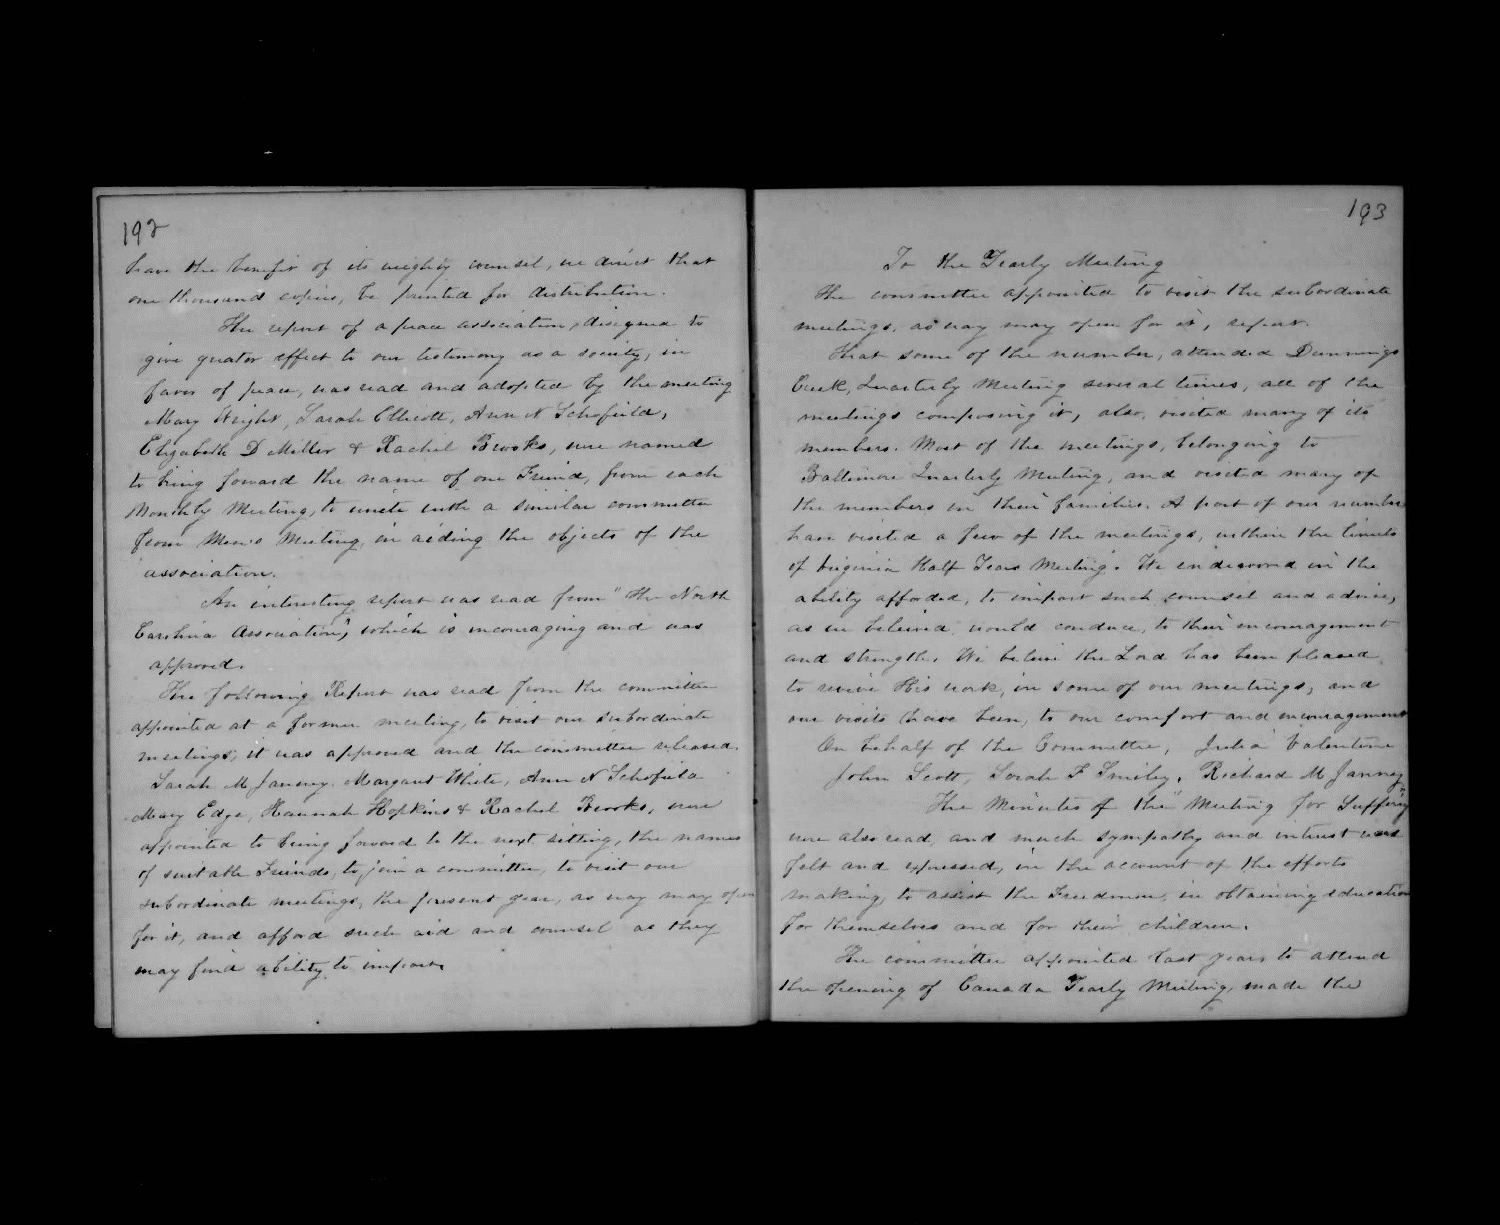 192
have the benefit of its weighty counsel, we direct that
one thousand copies, be printed for distribution.
The report of a peace association, designed to
give greater effect to our testimony as a society, in
favor of peace, was read and adopted by the meeting
Mary Wright, Sarah Ellicott, Ann N Schofield,
Elizabeth D Miller & Rachel Brooks, were named
to bring forward the name of one Friend, from each
Monthly Meeting, to unite with a similar committee
from Men's Meeting, in aiding the objects of the
association.
An interesting report was read from "The North
Carolina Association", which is encouraging and was
approved.
The following Report was read from the committee
appointed at a former meeting, to visit our subordinate
meetings, it was approved and the committee released.
Sarah M Janney, Margaret White, Ann N Schofield
Mary Edge, Hannah Hopkins & Rachel Brooks, were
appointed to bring forward to the next sitting, the names
of suitable Friends, to join a committee, to visit our
subordinate meetings, the present year, as way may open
for it, and afford such aid and counsel as they
may find ability to impart.
193
To the Yearly Meeting
The committee appointed to visit the subordinate
meetings, as way may open for it, report.
That some of the number, attended Dunnings
Creek, Quarterly Meeting several times, all of the
meetings composing it, also, visited many of its
members. Most of the meetings, belonging to
Baltimore Quarterly Meeting, and visited many of
the members in their families. A part of our number
have visited a few of the meetings, within the limits
of Virginia Half Years Meeting. We endeavored in the
ability afforded, to impart such counsel and advice,
as we believed, would conduce, to their encouragement
and strength. We believe the Lord has been pleased
to revive His work, in some of our meetings, and
our visits have been, to our comfort and encouragement
On behalf of the Committee, Julia Valentine
John Scott, Sarah F Smiley, Richard M Janney
The Minutes of the "Meeting for Sufferings"
were also read, and much sympathy and interest was
felt and expressed, in the account of the efforts
making, to assist the Freedmen, in obtaining education
for themselves and for their children.
The committee appointed last year, to attend
the opening of Canada Yearly Meeting, made the